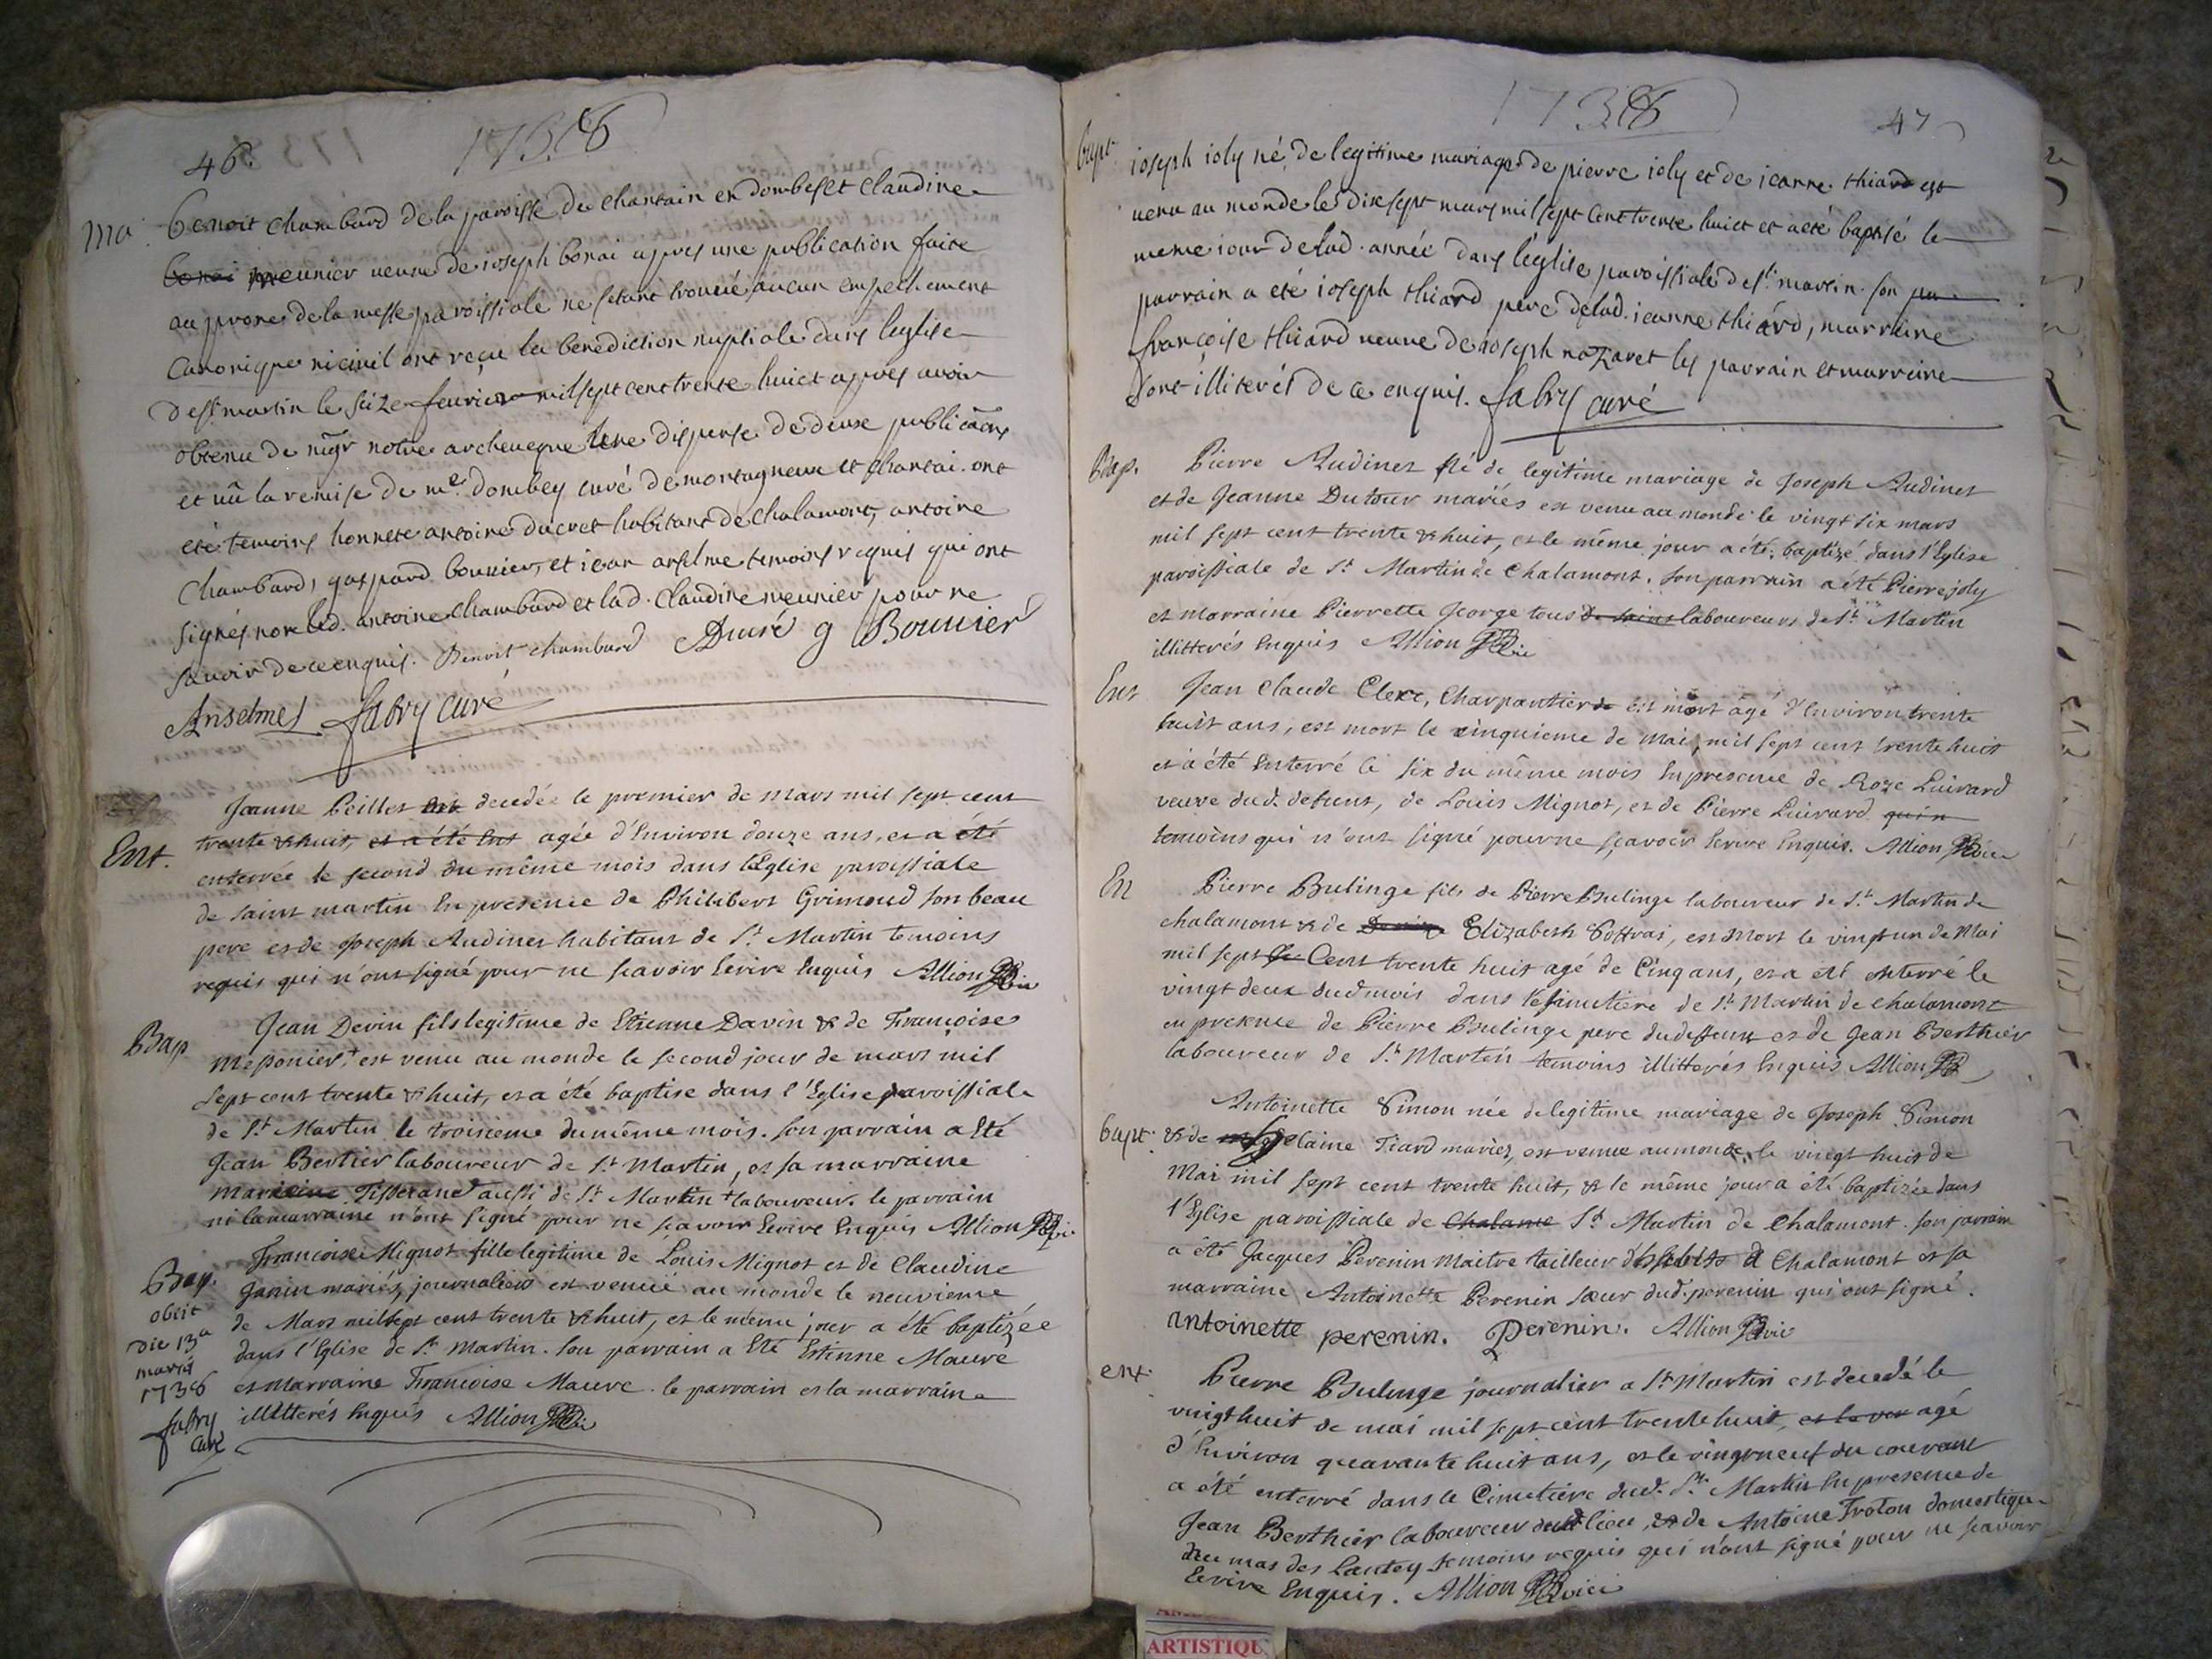 46.
1738
ma. benoit chambard de la paroisse de chantain en dombes et claudine
bonai meunier veuve de ioseph bonai apres une publication faite
au prone de la messe paroissiale ne setant trouvé aucun empechement
canonique ni civil ont reçu la benediction nuptiale dans leglise
de st martin le seize fevrier mil sept cent trente huict apres avoir
obtenu de mgr notre archeveque une dispense de deux publicaons
et vu la remise de mr. dombey curé de montagneux et chantai. ont
eté temoins honnete antoine ducret habitant de chalamont, antoine
chambard, gaspard bouvier, et iean anselme temoins requis qui ont
signés non led. antoine chambard et lad. claudine meunier pour ne
savoir de ce enquis. Benoit chambard Ducré g Bouuier
Anselmes fabry curé
Ent.
Jeanne Peillet decedée le premier de mars mil sept cent
trente & huit, et a été ent agée d'Environ douze ans, et a été
enterrée le second du même mois dans l'Eglise paroissiale
de saint martin En presence de Philibert Grimoud son beau
pere et de Joseph Audinet habitant de St Martin temoins
requis qui n'ont signé pour ne scavoir Ecrire Enquis Allion
Bap
Jean Devin fils legitime de Etienne Davin & de Françoise
Meponier + est venu au monde le second jour de mars mil
sept cent trente & huit, et a été baptise dans l'Eglise paroissiale
de St Martin le troisieme du même mois. son parrain a Eté
Jean Bertier laboureur de St Martin, et sa marraine
Tisserand aussi de St Martin + laboureur. le parrain
ni la marraine n'ont signé pour ne scavoir Ecrire Enquis Allion
Bap.
obiit
die 13a
martii
1738
fabry
curé
Francoise Mignot fille legitime de Louis Mignot et de Claudine
Janin mariés, journaliers est venuë au monde le neuvieme
de Mars mil sept cent trente & huit, et le même jour a été baptizée
dans l'Eglise de St Martin. Son parrain a Eté Estienne Mauve
et Marraine Francoise Mauve. le parrain et la marraine
illitterés Enquis Allion
1738
47
bapt. ioseph ioly né de legitime mariage de pierre ioly et de ieanne thiard est
venu au monde le dix sept mars mil sept cent trente huict et a eté baptisé le
meme iour de lad. année dans l'église paroissiale de st. martin. son pa
parrain a été ioseph thiard pere de lad. ieanne thiard, marraine
françoise thiard veuve de ioseph nazaret les parrain et marraine
sont illiterés de ce enquis. fabry curé
Bap.
Pierre Audinet Né de legitime mariage de Joseph Audinet
et de Jeanne Dutour mariés est venu au monde le vingt six mars
mil sept cent trente & huit, et le même jour a été baptizé dans l'Eglise
paroissiale de St Martin de Chalamont. Son parrain a été Pierre joly
et marraine Pierrette George tous laboureurs de St Martin
illitterés Enquis Allion
Ent
Jean Claude Clerc, Charpantier de est mort âgé d'Environ trente
huit ans, est mort le cinquieme de Mai, mil sept cent trente huit
et a été Enterré le six du même mois En presence de Roze Luivard
veuve dud. defunt, de Louis Mignot, et de Pierre Luivard qui n
temoins qui n'ont signé pour ne sçavoir Ecrire Enquis. Allion
En
Pierre Bulinge fils de Pierre Bulinge laboureur de St Martin de
chalamont & de Elizabeth Poffrai, est Mort le vingt un de Mai
mil sept Cent trente huit agé de Cinq ans, et a été enterré le
vingt deux dud mois dans le simetiere de St Martin de chalamont
en presence de Pierre Bulinge pere du deffunt et de Jean Berthier
laboureur de St Martin temoins illitterés Enquis Allion
bapt.
Antoinette Simon née de legitime mariage de Joseph Simon
& de Tiard mariés, est venue au monde le vingt huit de
Mai mil sept cent trente huit, & le même jour a été baptizée dans
l'Eglise paroissiale de Chalame St Martin de Chalamont. son parrain
a été Jacques Perenin Maitre tailleur d'habits a Chalamont et sa
marraine Antoinette Perenin sœur dud. perenin qui ont signé.
antoinette perenin. Perenin. Allion vic
ent.
Pierre Bulinge journalier a St Martin est decedé le
vingt huit de mai mil sept cent trente huit, agé
d'Environ quarante huit ans, et le vingt neuf du courant
a été enterré dans le Cimetiere dud. St. Martin En presence de
Jean Berthier laboureur dud lieu, & de Antoine Troton domestique
du mas des Lantey temoins requis qui n'ont signé pour ne scavoir
Ecrire Enquis. Allion vici
ARTISTIQU